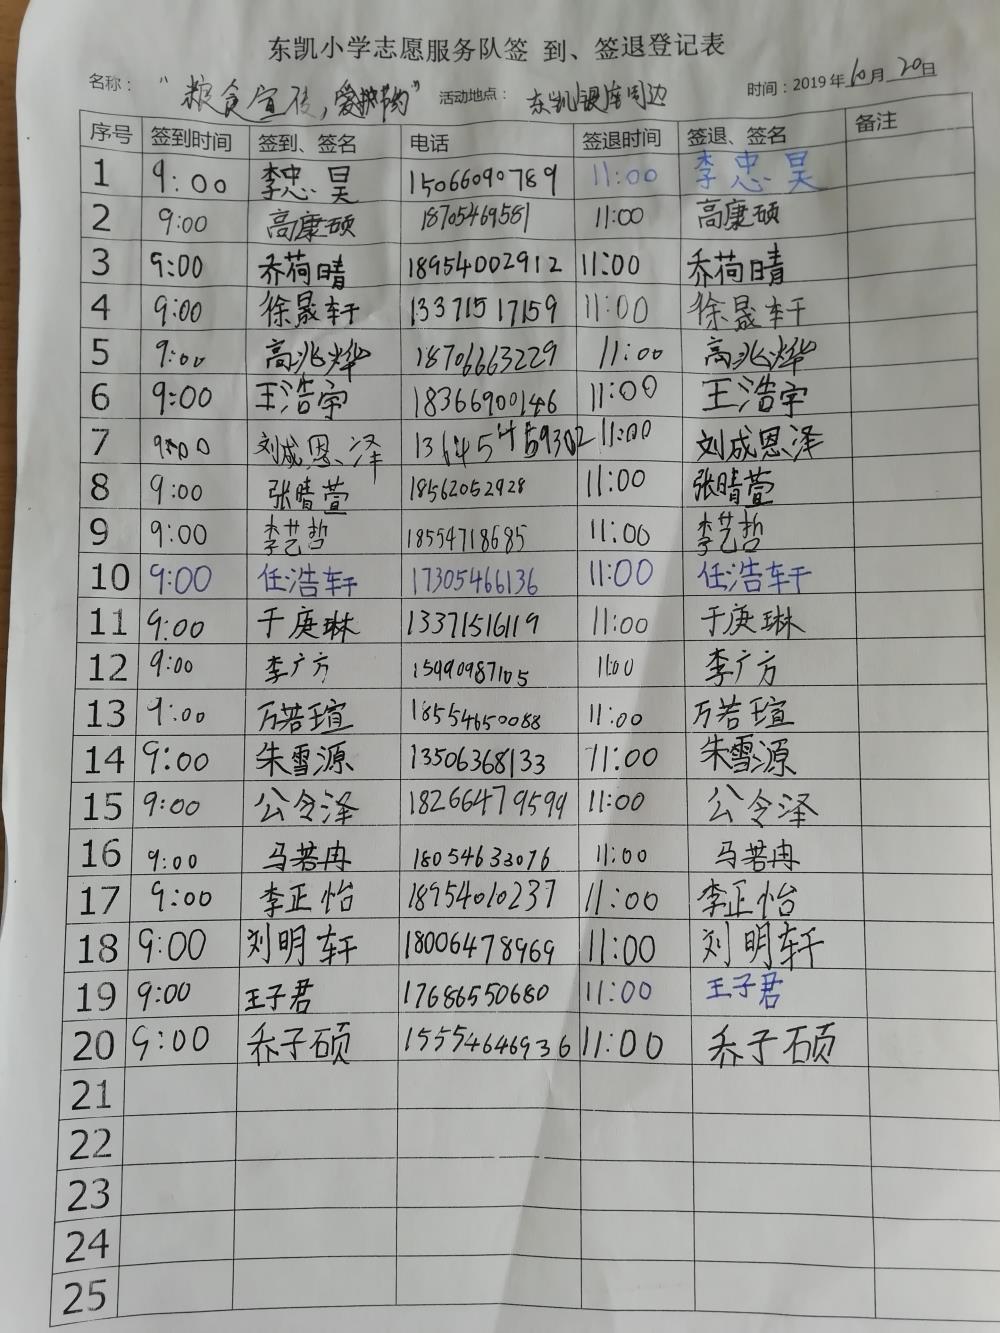 东凯小学志愿服务队签 到、签退登记表
名称： “粮食宣传，爱护节约” 活动地点： 东凯银座周边 时间：2019年10月20日
序号 签到时间 签到、签名 电话 签退时间 签退、签名 备注
1 9:00 李忠昊 15066090789 11:00 李忠昊
2 9:00 高康硕 18705469581 11:00 高康硕
3 9:00 乔荷晴 18954002912 11:00 乔荷晴
4 9:00 徐晟轩 13371517159 11:00 徐晟轩
5 9:00 高兆烨 18706663229 11:00 高兆烨
6 9:00 王浩宇 18366900146 11:00 王浩宇
7 9:00 刘成恩泽 11:00 刘成恩泽
8 9:00 张晴萱 18562052928 11:00 张晴萱
9 9:00 李艺哲 18554718685 11:00 李艺哲
10 9:00 任浩轩 17305466136 11:00 任浩轩
11 9:00 于庚琳 13371516119 11:00 于庚琳
12 9:00 李广方 15990987105 11:00 李广方
13 9:00 万若瑄 18554650088 11:00 万若瑄
14 9:00 朱雪源 13506368133 11:00 朱雪源
15 9:00 公令泽 18266479599 11:00 公令泽
16 9:00 马若冉 18054633076 11:00 马若冉
17 9:00 李正怡 18954010237 11:00 李正怡
18 9:00 刘明轩 18006478969 11:00 刘明轩
19 9:00 王子君 17686550680 11:00 王子君
20 9:00 乔子硕 15554646936 11:00 乔子硕
21
22
23
24
25